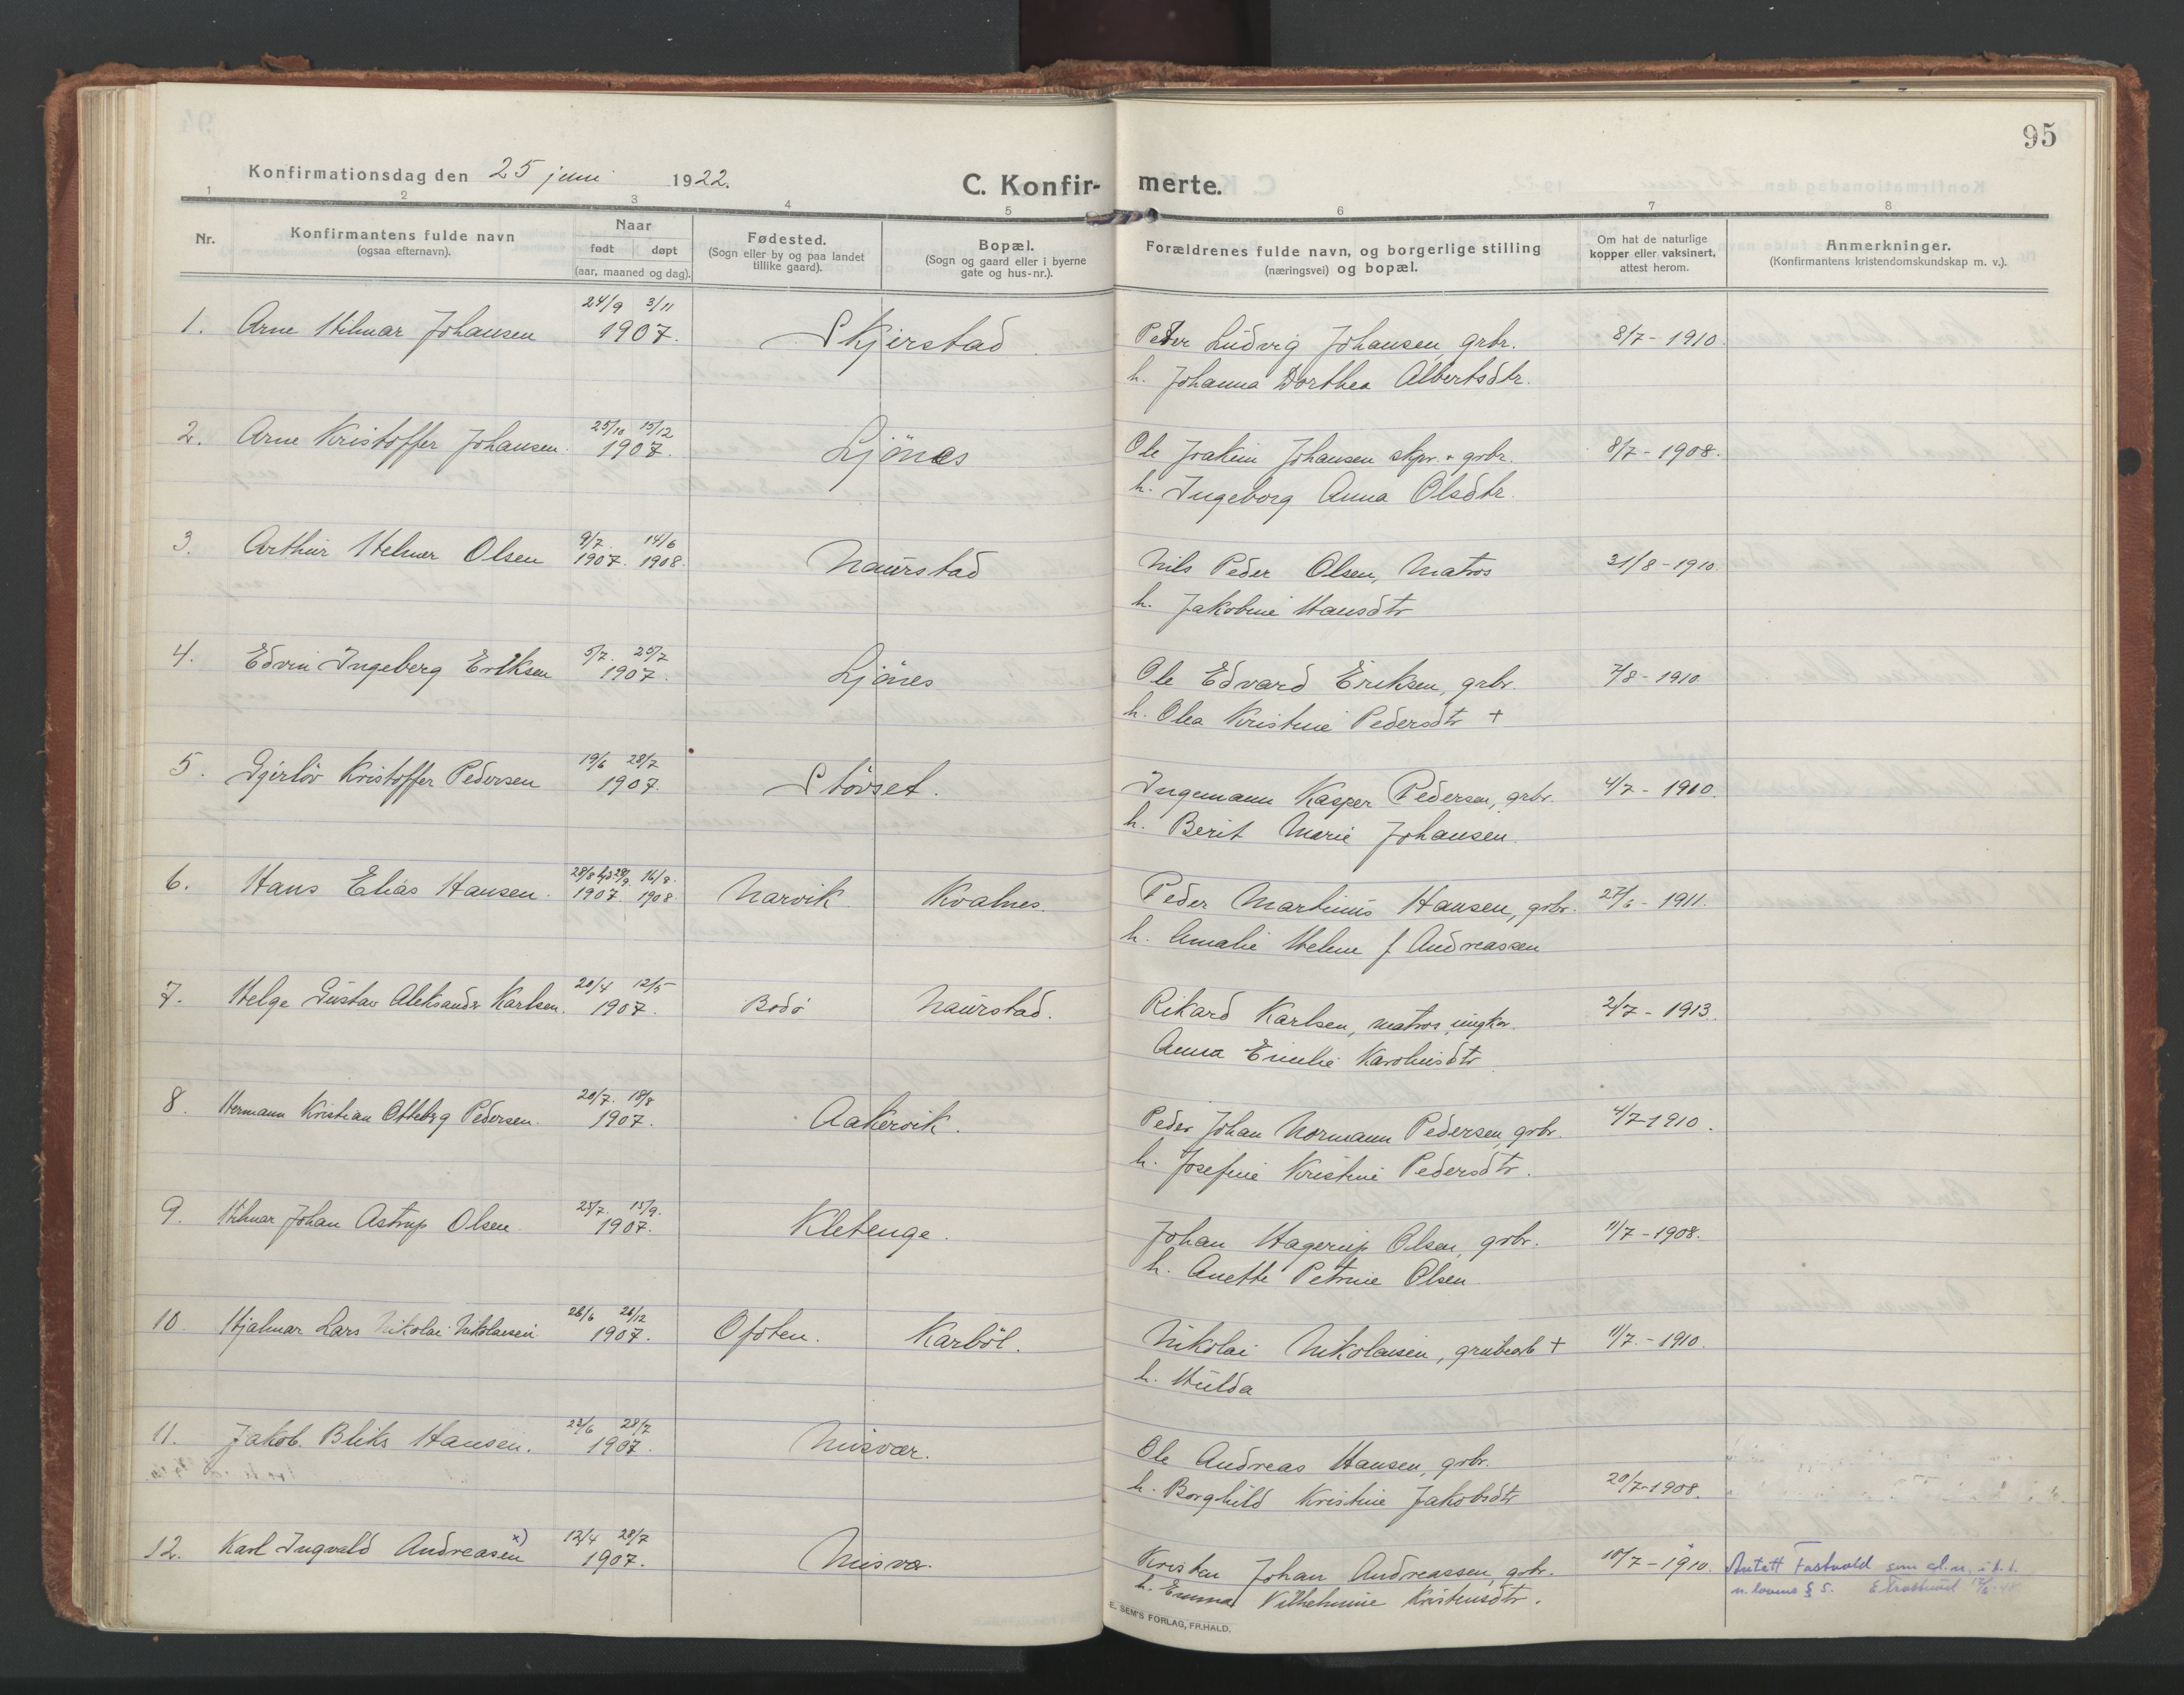 95
Konfirmationsdag den 25 juni 1922.
C. Konfir- merte.
1 2 3 4 5 6 7 8
Nr.
Konfirmantens fulde navn
(ogsaa efternavn).
Naar
født døpt
(aar, maaned og dag).
Fødested.
(Sogn eller by og paa landet
tillike gaard).
Bopæl.
(Sogn og gaard eller i byerne
gate og hus-nr.).
Forældrenes fulde navn, og borgerlige stilling
(næringsvei) og bopæl.
Om hat de naturlige
kopper eller vaksinert,
attest herom.
Anmerkninger.
(Konfirmantens kristendomskundskap m. v.).
24/9 3/11
1. Arne Hilmar Johansen 1907. Skjerstad Peter Ludvig Johansen, grbr. 8/7 - 1910.
h. Johanna Dorthea Albertsdtr.
25/10 15/12
2. Arne Kristoffer Johansen. 1907. Ljönes Ole Joakim Johansen skpr. + grbr. 8/7 - 1908.
h. Ingeborg Anna Olsdtr.
9/7. 14/6
3. Arthur Helmer Olsen 1907. 1908. Naurstad Nils Peder Olsen, Matros 31/8 - 1910.
h. Jakobine Hansdtr
5/7. 25/7
4. Edvin Ingeberg Eriksen 1907. Ljönes Ole Edvard Eriksen, grbr. 7/8 - 1910
h. Olea Kristine Pedersdtr +
19/6 28/7
5. Kristoffer Pedersen 1907. Störset. Ingemann Kasper Pedersen, grbr. 4/7 - 1910.
h. Berit Marie Johansen.
28/8 29/9. 16/8.
6. Hans Elias Hansen. 1907 1908. Narvik. Kvalnes. Peder Martinus Hansen, grbr. 27/6 - 1911.
h. Amalie Helene f Andreassen
20/4 12/5
7. Helge Gustav Aleksander Karlsen. 1907. Bodö Naurstad. Rikard Karlsen, matros, ungkar. 2/7 - 1913.
Anna Emelie Karolinsdtr
20/7. 18/8
8. Hermann Kristian Otteberg Pedersen. 1907. Aakervik. Peder Johan Normann Pedersen, grbr. 4/7-1910.
h. Josefine Kristine Pedersdtr.
25/7. 15/9.
9. Hilmar Johan Astrup Olsen 1907. Kletenge. Johan Hagerup Olsen, grbr. 11/7 - 1908.
h. Anette Petrine Olsen
26/6 26/12
10. Hjalmar Lars Nikolai Nikolaisen 1907. Ofoten. Karböl. Nikolai Nikolaisen, grubearb + 11/7. - 1910.
h. Hulda
23/6 28/7
11. Jakob Bliks Hansen. 1907. Misvær. Ole Andreas Hansen, grbr.
h. Borghild Kristine Jakobsdtr 20/7-1908.
12/4 28/7
12. Karl Ingvald Andreasen x) 1907. Misvær. Kristen Johan Andreassen, grbr. 10/7 - 1910. Antatt Fastvold som sl.n. i h.t.
h. Emma Vilhelmine Kristensdtr. n. lovens § 5.
E. SEM'S FORLAG, FR.HALD.